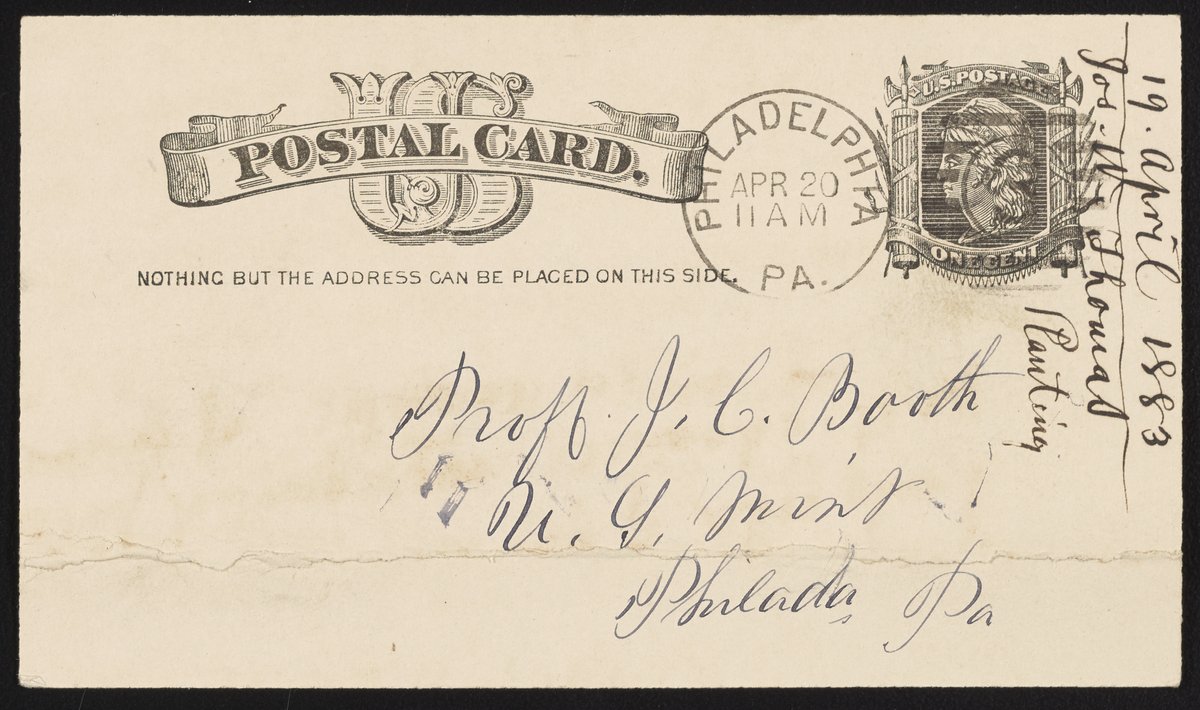 US
POSTAL CARD.
NOTHING BUT THE ADDRESS CAN BE PLACED ON THIS SIDE.
PHILADELPHIA
APR 20
11 AM
PA.
U.S. POSTAGE
ONE CENT
Proff. J. C. Booth
U. S. Mint
Philada Pa
19. April 1883
Jos. W Thomas
Planting